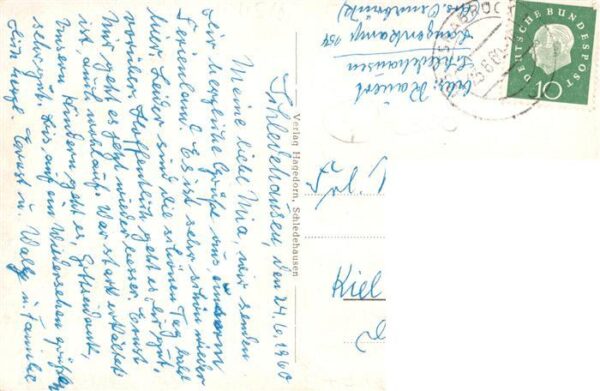 Schledehausen, den 24.6.1960
Meine liebe Mia, wir senden
dir herzliche Grüße aus unserm
Ferienland. Es ist sehr schön wieder
hier. Leider sind die schönen Tage bald
vorüber. Hoffentlich geht es dir gut,
Mir geht es jetzt wieder besser. Ernst
ist auch wohlauf. War stark erkältet
Unseren Kindern geht es, Gottseidank,
sehr gut. Bis auf ein Wiedersehen grüßen
herzl. Ernst u. Wally u. Familie
Verlag Hagedorn, Schledehausen
Rauert
Schledehausen
Langenkamp 154
(Krs. Osnabrück)
DEUTSCHE BUNDESPOST
10
Kiel